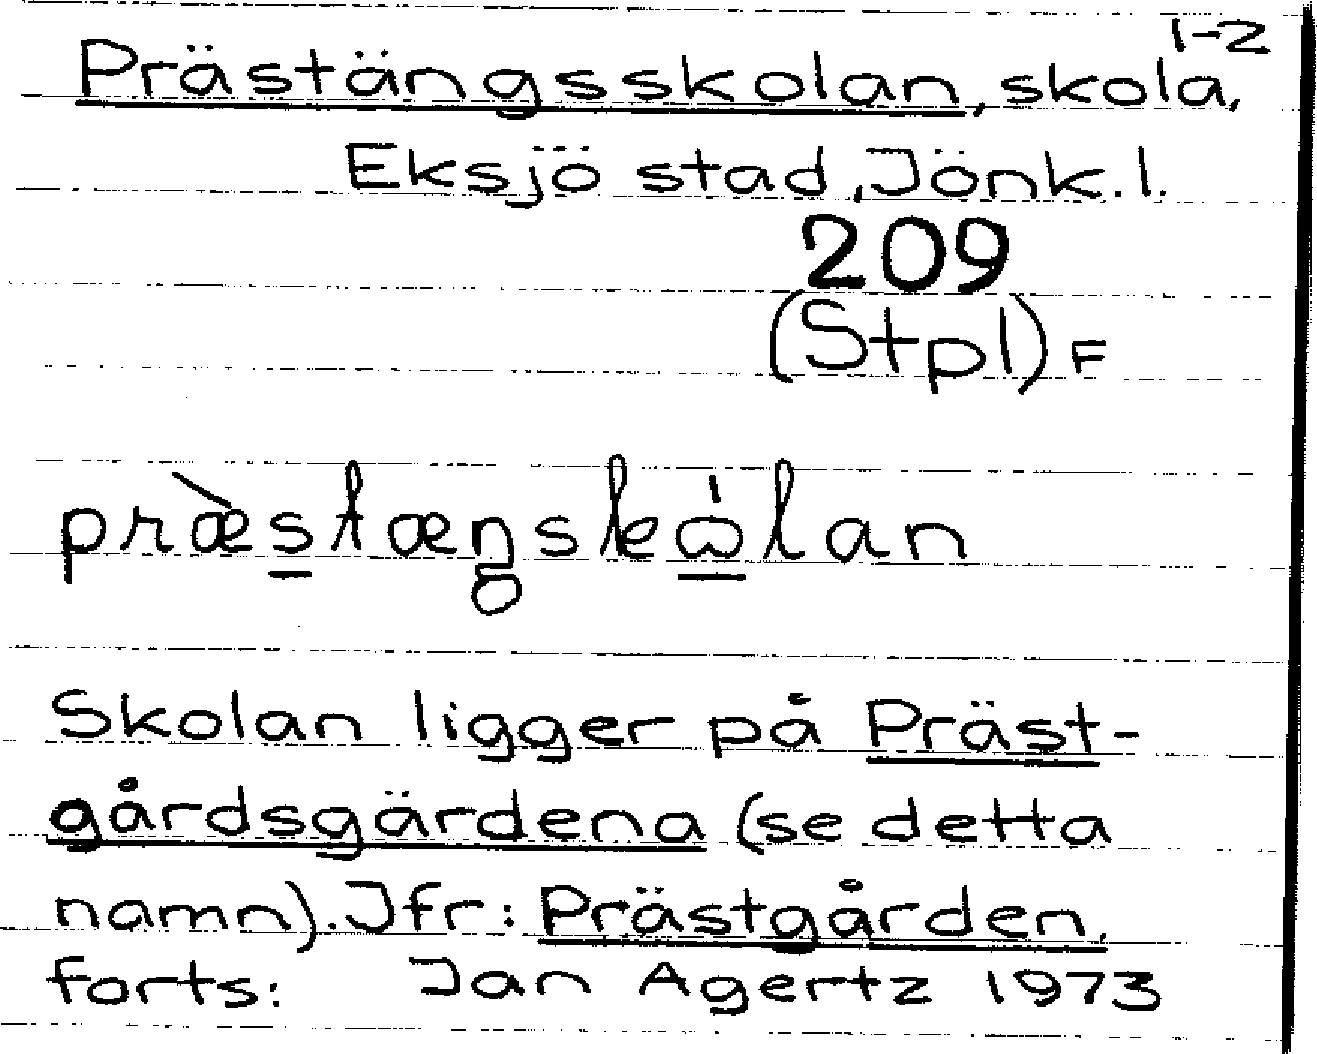 1-2
Prästängsskolan, skola,
Eksjö stad, Jönk. l.
209
(Stpl) F
præ̀stæŋskɷ́lan
Skolan ligger på Präst-
gårdsgärdena (se detta
namn). Jfr: Prästgården.
forts: Jan Agertz 1973